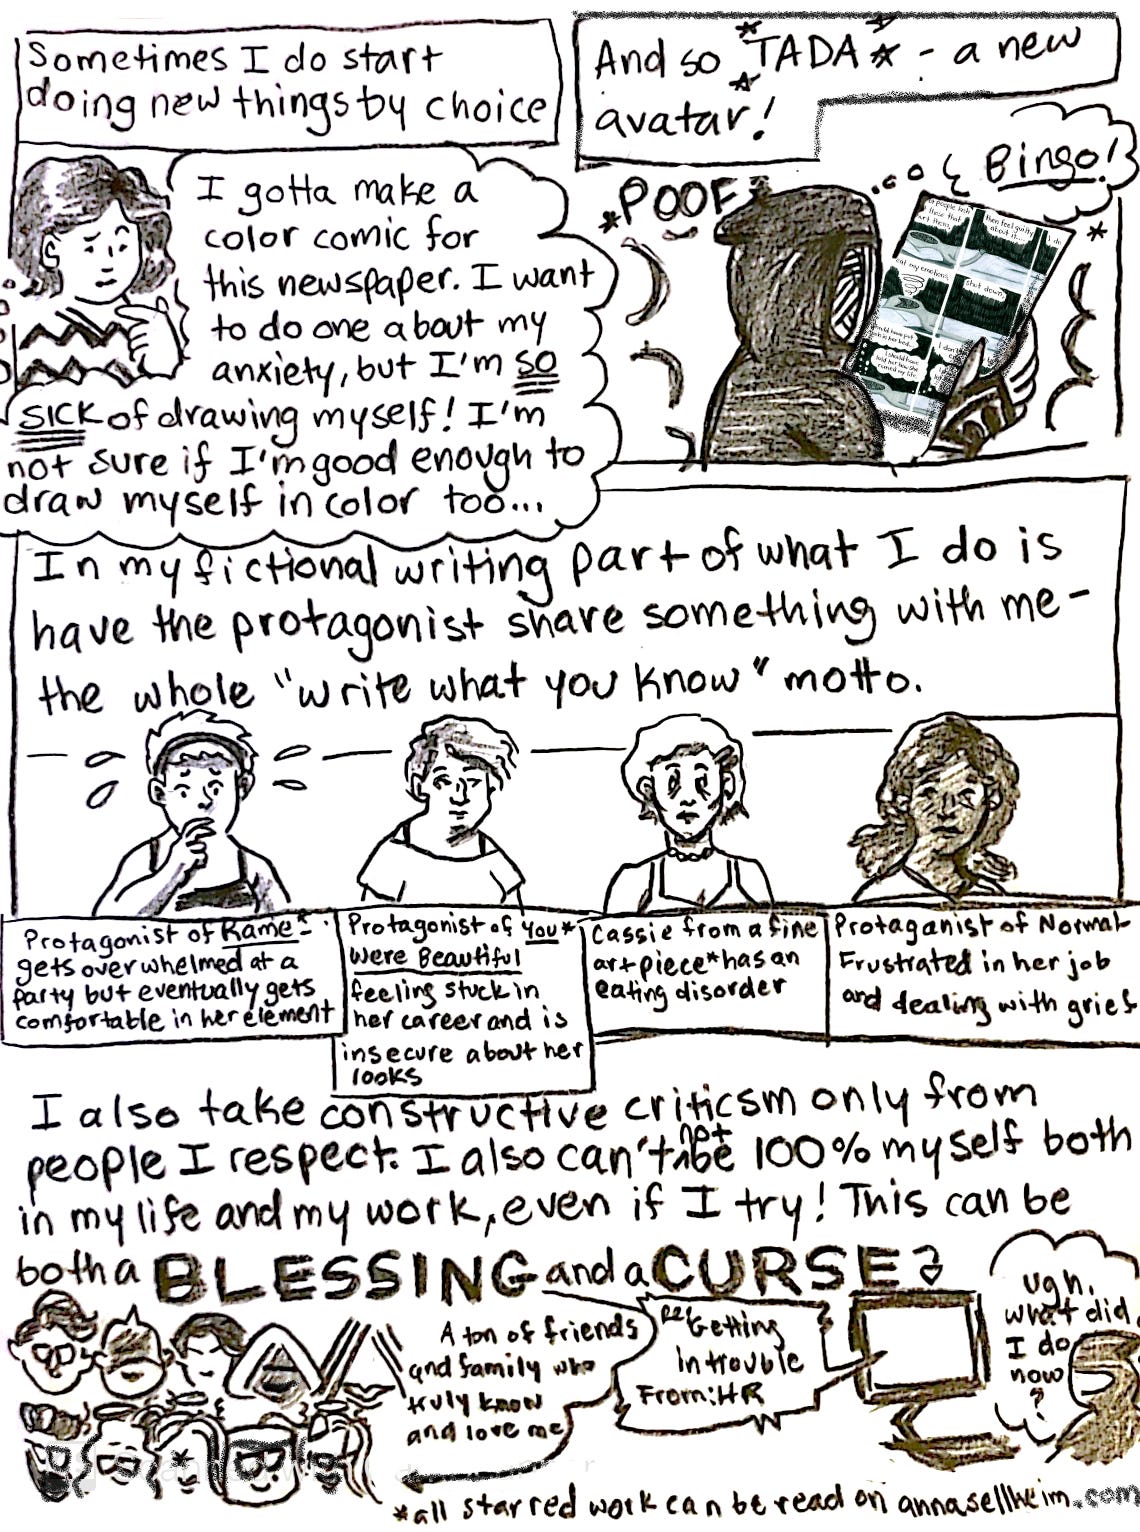 Sometimes I do start
doing new things by choice
I gotta make a
color comic for
this newspaper. I want
to do one about my
anxiety, but I'm SO
SICK of drawing myself! I'm
not sure if I'm good enough to
draw myself in color too...
And so *TADA* - a new
avatar!
Bingo!
*POOF*
then feel guilty
about it...
eat my emotions,
shut down,
I should have
told her how she
ruined my life
In my fictional writing part of what I do is
have the protagonist share something with me-
the whole "write what you know" motto.
Protagonist of Rame*
gets overwhelmed at a
party but eventually gets
comfortable in her element
Protagonist of You*
Were Beautiful
feeling stuck in
her career and is
insecure about her
looks
Cassie from a fine
art piece* has an
eating disorder
Protaganist of Normal
Frustrated in her job
and dealing with grief
I also take constructive criticsm only from
people I respect. I also can't not be 100% myself both
in my life and my work, even if I try! This can be
both a BLESSING and a CURSE
A ton of friends
and family who
truly know
and love me
Re: Getting
in trouble
From: HR
ugh.
what did
I do
now
?
*all starred work can be read on annasellheim.com